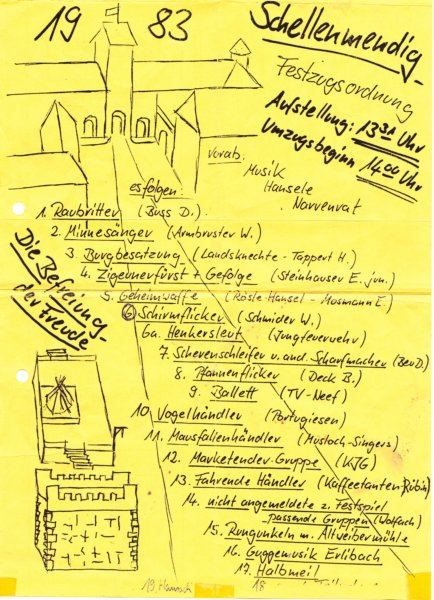 19 83
Schellenmendig
Festzugsordnung
Aufstellung: 13 31 Uhr
Umzugsbeginn 14 00 Uhr
vorab:
Musik
Hansele
Narrenrat
es folgen:
1. Raubritter (Buss D.)
2. Minnesänger (Armbruster W.)
3 Burgbesatzung (Landsknechte - Tappert H.)
4. Zigeunerfürst + Gefolge (Steinhauser E. jun.)
5. Geheimwaffe (Rösle-Hansel - Mosmann E.)
6 Schirmflicker (Schmider W.)
6a. Henkersleut (Jungfeuerwehr)
7. Scherenschleifer u. and. Scharfmacher (Beu D.)
8. Pfannenflicker (Deck B.)
9. Ballett (TV-Neef)
10. Vogelhändler (Portugiesen)
11. Mausfallenhändler (Mustoch-Singers)
12. Marketender-Gruppe (KJG)
13. Fahrende Händler (Kaffeetanten-Rubin)
14. nicht angemeldete z. Festspiel
passende Gruppen (Wolfach)
15. Rungunkeln m. Altweibermühle
16. Guggemusik Erlibach
17. Halbmeil
18
19.
Die Befreiung
der Freude